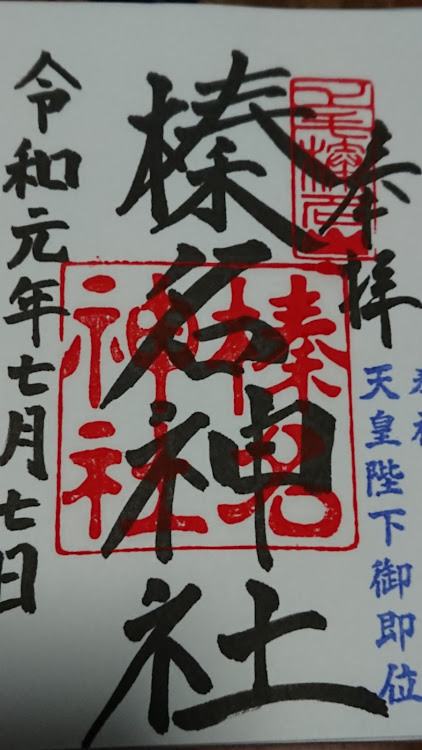 奉拝
天皇陛下御即位
榛名神社
榛名
神社
令和元年七月七日